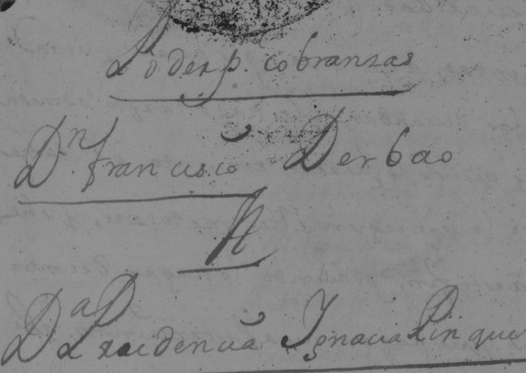 Poder p.ª cobranzas
Dn. francisco Derbao
A
Da. Prudencia Ignacia Pinque